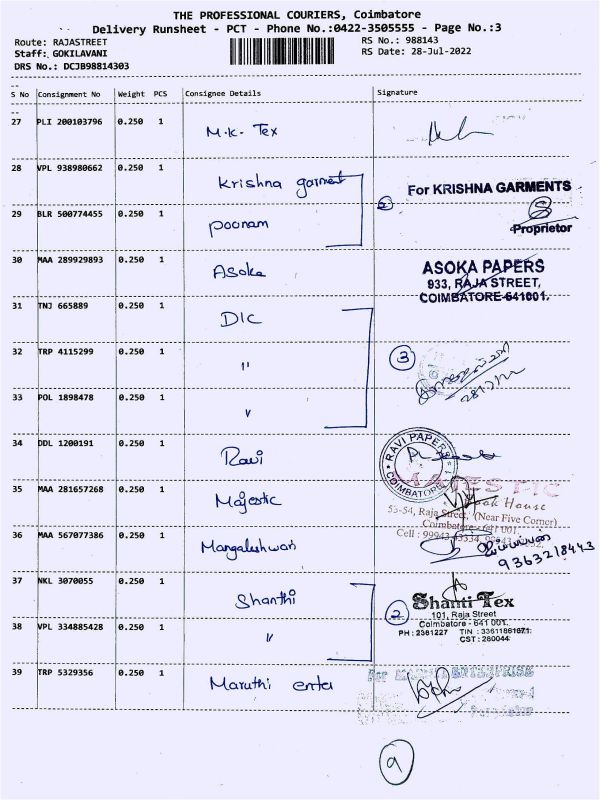 THE PROFESSIONAL COURIERS, Coimbatore
Delivery Runsheet - PCT - Phone No.:0422-3505555 - Page No.:3
Route: RAJASTREET
RS No.: 988143
Staff: GOKILAVANI
RS Date: 28-Jul-2022
DRS No.: DCJB98814303
S No Consignment No Weight PCS Consignee Details Signature
27 PLI 200103796 0.250 1 M.K. Tex
28 VPL 938980662 0.250 1 Krishna garment
For KRISHNA GARMENTS
2
29 BLR 500774455 0.250 1 Poonam
Proprietor
30 MAA 289929893 0.250 1 Asoka
ASOKA PAPERS
933, RAJA STREET,
COIMBATORE-641001.
31 TNJ 665889 0.250 1 DIC
32 TRP 4115299 0.250 1 "
3
33 POL 1898478 0.250 1 "
34 DDL 1200191 0.250 1 Ravi
RAVI PAPERS
COIMBATORE
35 MAA 281657268 0.250 1 Majestic
MAJESTIC
Book House
53-54, Raja Street, (Near Five Corner)
Coimbatore - 641 001.
36 MAA 567077386 0.250 1 Mangaleshwari
Cell : 99943
9363218443
37 NKL 3070055 0.250 1 Shanthi
Shanti Tex
101, Raja Street
2
Coimbatore - 641 001.
38 VPL 334885428 0.250 1 "
PH : 2361227 TIN : 33611861671
CST : 280044
39 TRP 5329356 0.250 1 Maruthi enter
9